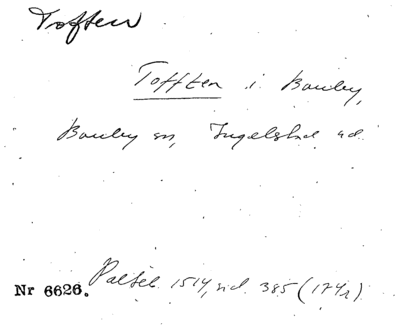 Toften
Tofften i Bawby,
Bawby sn, Ingelstad hd.
Nr 6626. Palteb. 1514, sid. 385 (174r)